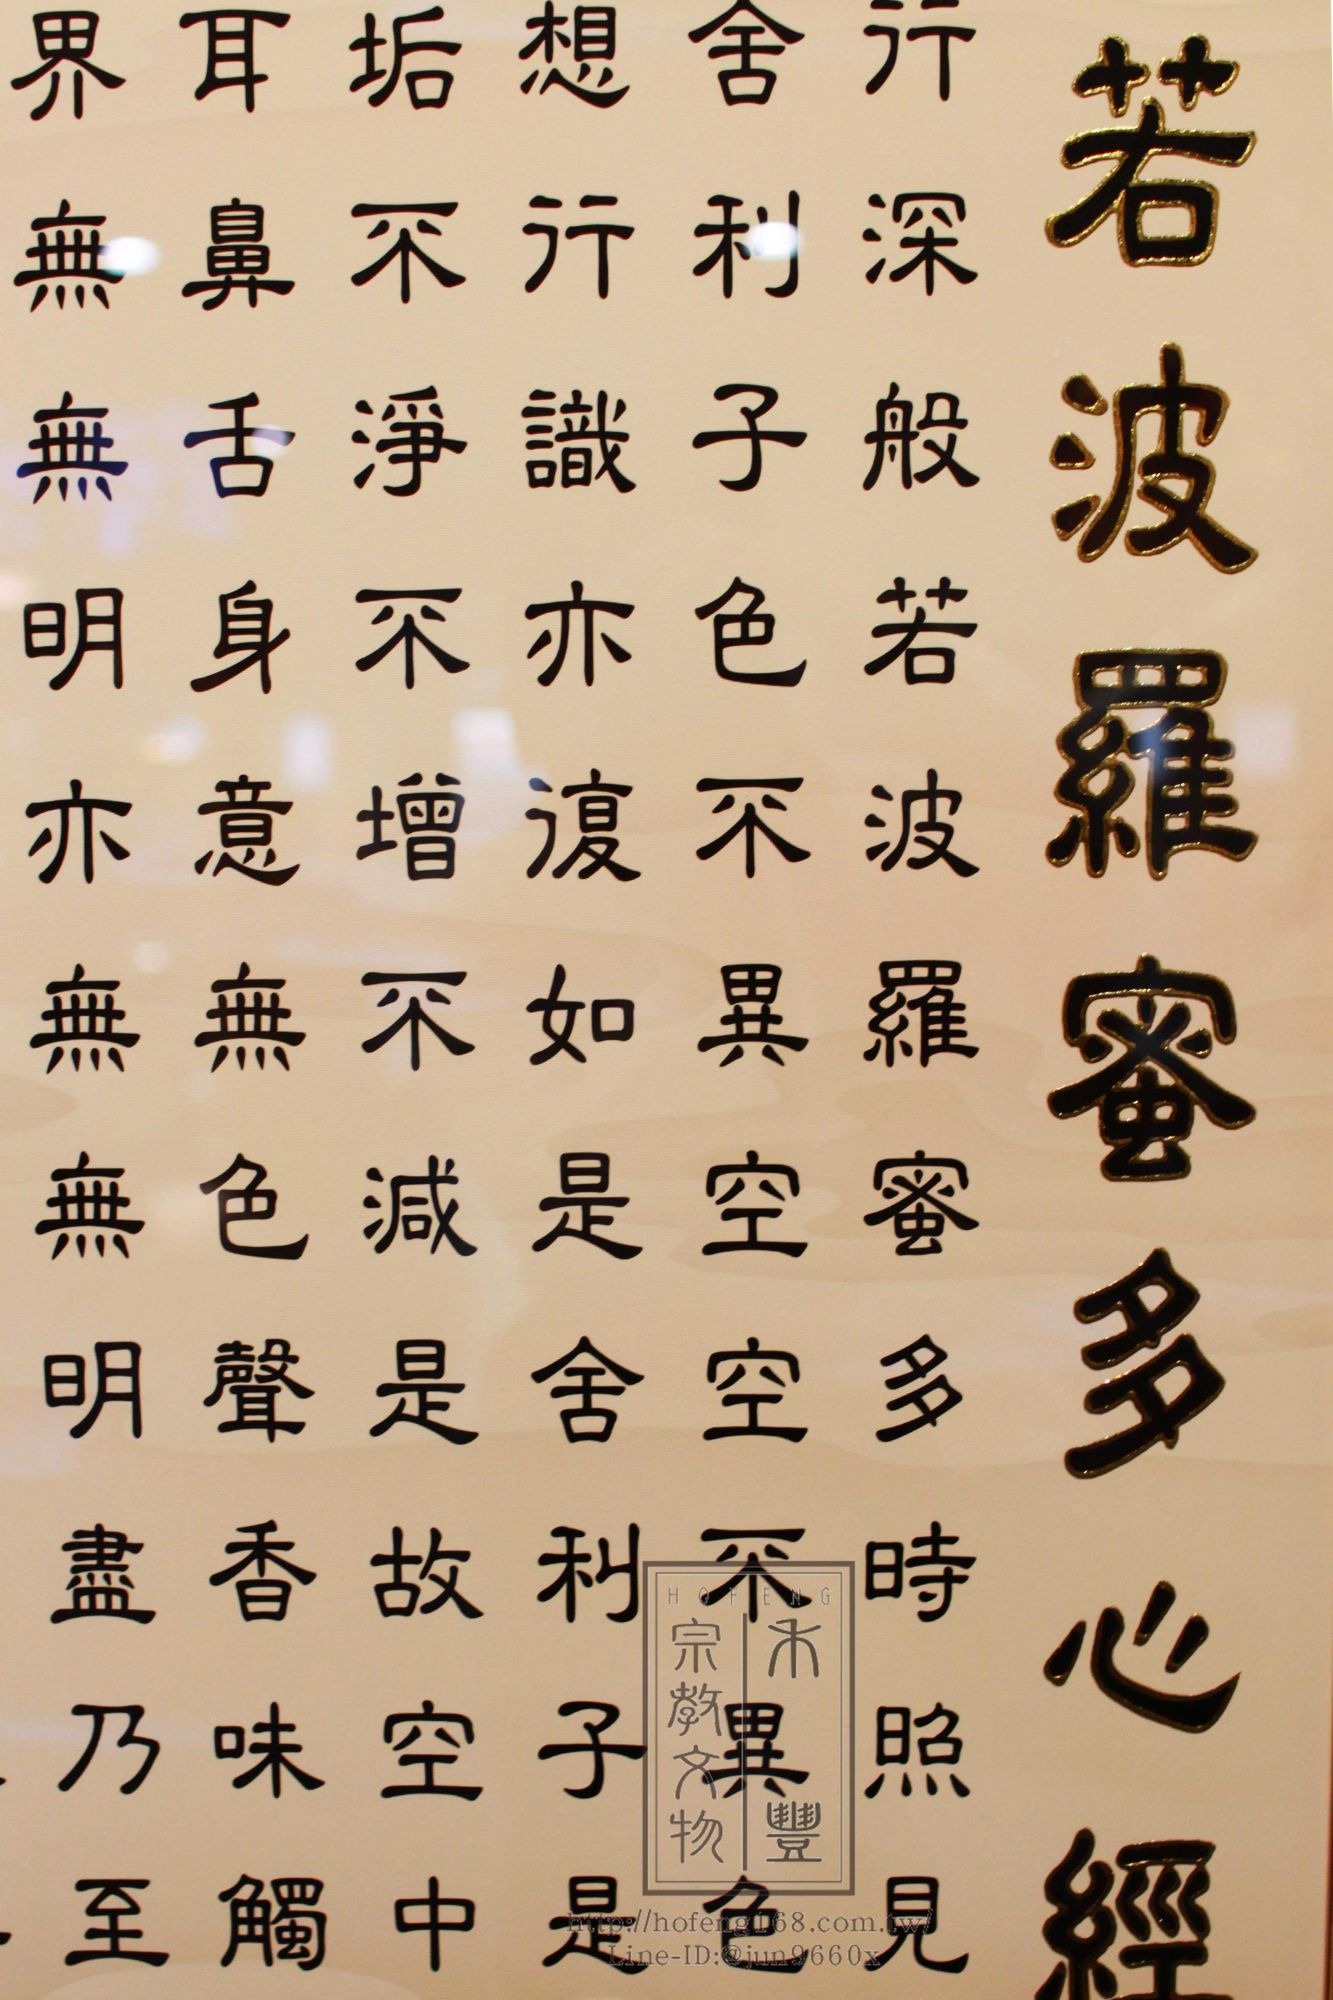 若波羅蜜多心經
行深般若波羅蜜多時照見
舍利子色不異空空不異色
想行識亦復如是舍利子是
垢不淨不增不減是故空中
耳鼻舌身意無色聲香味觸
界無無明亦無無明盡乃至
HOFENG
禾豐
宗教文物
http://hofeng168.com.tw/
Line-ID:@jun9660x